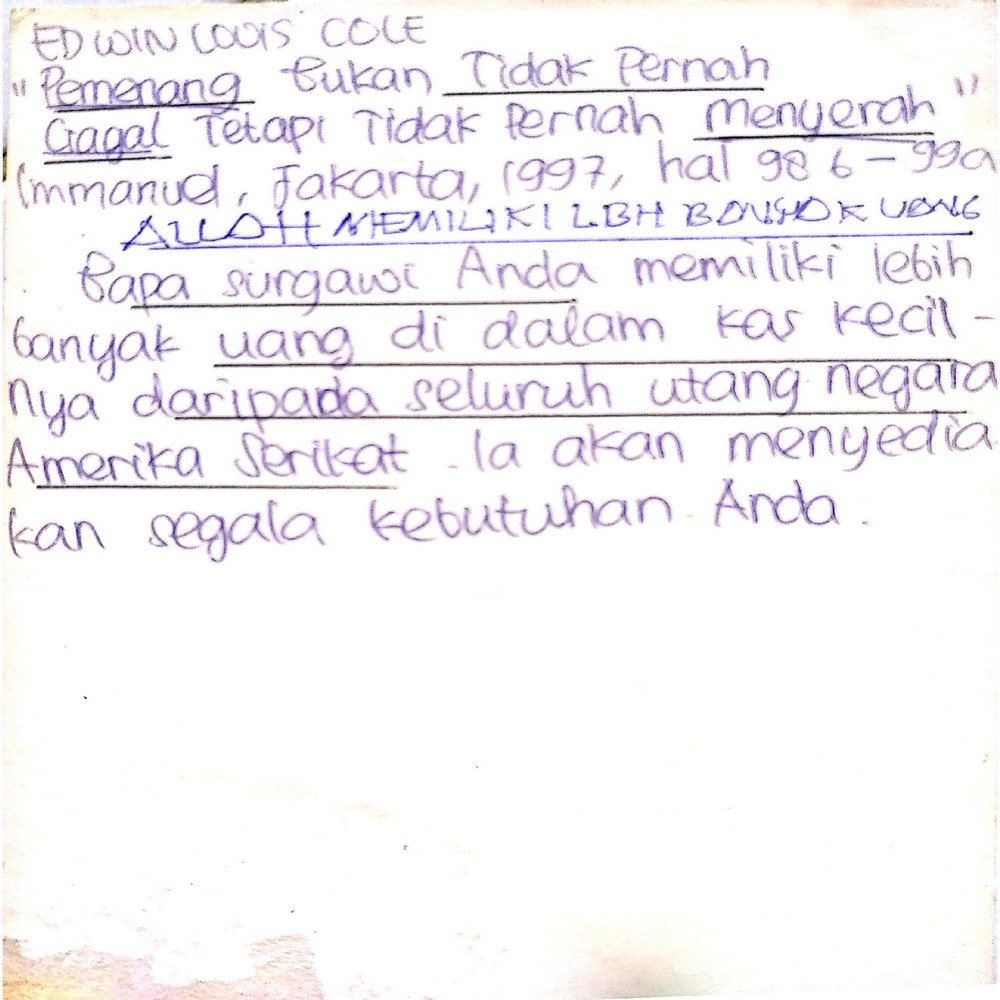 EDWIN LOUIS COLE
"Pemenang Bukan Tidak Pernah
Gagal Tetapi Tidak Pernah Menyerah"
Immanuel, Jakarta, 1997, hal 98 b - 99a
ALLAH MEMILIKI LBH BANYAK UANG
Bapa surgawi Anda memiliki lebih
banyak uang di dalam kas kecil -
nya daripada seluruh utang negara
Amerika Serikat. Ia akan menyedia
kan segala kebutuhan Anda.